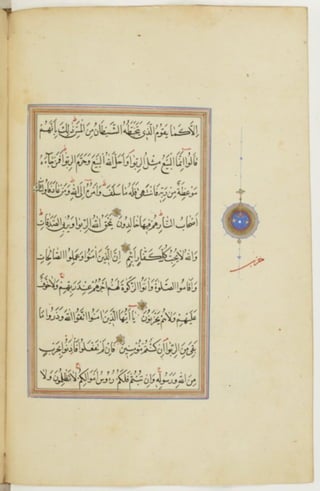 إلا كما يقوم الذي يتخبطه الشيطان من المس ذلك بأنهم
قالوا إنما البيع مثل الربوا وأحل الله البيع وحرم الربوا فمن جاءه
موعظة من ربه فانتهى فله ما سلف وأمره إلى الله ومن عاد فأولئك
أصحاب النار هم فيها خالدون يمحق الله الربوا ويربي الصدقات
والله لا يحب كل كفار أثيم إن الذين آمنوا وعملوا الصالحات
وأقاموا الصلوة وآتوا الزكوة لهم أجرهم عند ربهم ولا خوف
عليهم ولا هم يحزنون يا أيها الذين آمنوا اتقوا الله وذروا ما
بقي من الربوا إن كنتم مؤمنين فإن لم تفعلوا فأذنوا بحرب
من الله ورسوله وإن تبتم فلكم رءوس أموالكم لا تظلمون ولا
حزب